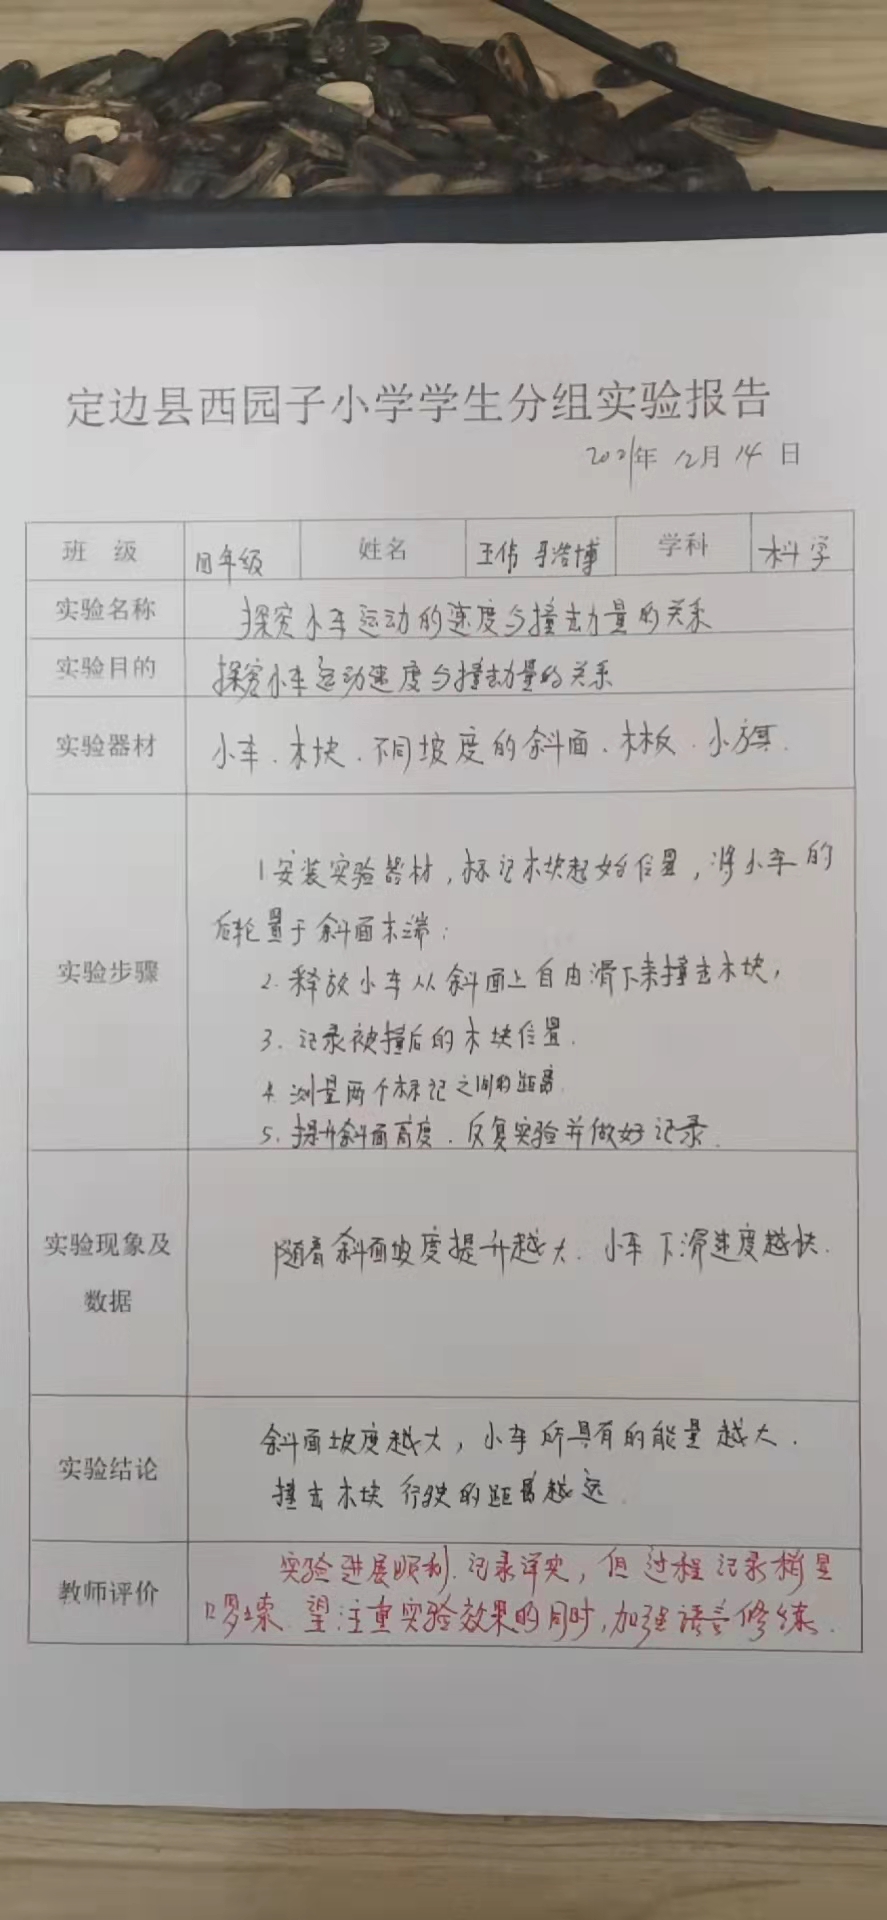 定边县西园子小学学生分组实验报告
2021年 12月 14 日
班 级 四年级 姓名 王伟 浩博 学科 科学
实验名称 探究小车运动的速度与撞击力量的关系
实验目的 探究小车运动速度与撞击力量的关系
实验器材 小车、木块、不同坡度的斜面、木板、小旗.
实验步骤
1安装实验器材,标记木块起始位置,将小车的
后轮置于斜面末端;
2.释放小车从斜面上自由滑下来撞击木块,
3.记录被撞后的木块位置.
4.测量两个标记之间的距离.
5.提升斜面高度.反复实验并做好记录.
实验现象及
数据
随着斜面坡度提升越大.小车下滑速度越快.
实验结论
斜面坡度越大,小车所具有的能量越大.
撞击木块行驶的距离越远.
教师评价
实验进展顺利.记录详实,但过程记录稍显
啰嗦.望注重实验效果的同时,加强语言修练.